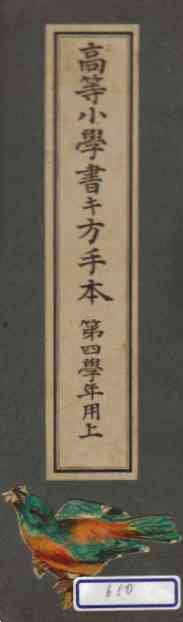 高等小學書キ方手本 第四學年用上
650